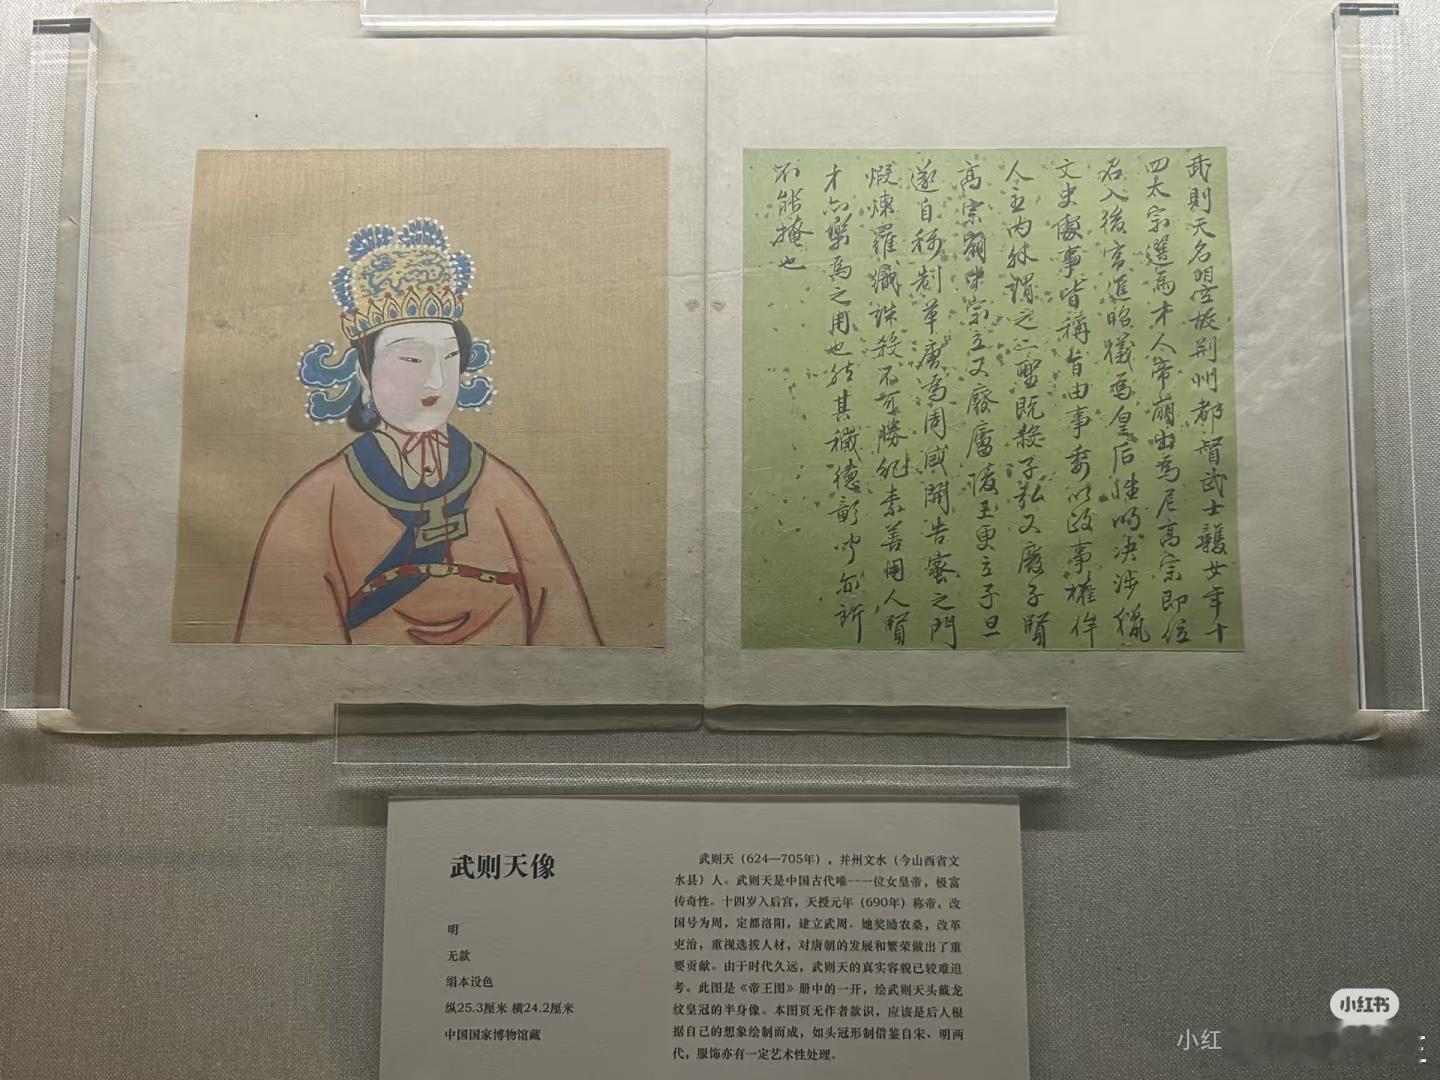 武則天名曌故荆州都督武士彠女年十
四太宗選為才人帝崩出為尼高宗即位
召入後宫進昭儀為皇后性明决涉獵
文史處事皆稱旨由事委以政事權侔
人主内外謂之二聖既殺子弘又廢子賢
高宗崩中宗立又廢廬陵王更立子旦
遂自称制革唐為周盛開告密之門
煅煉羅織誅殺不可勝紀素善用人賢
才亦樂為之用也然其穢德彰聞亦所
不能掩也
武则天像
明
无款
绢本设色
纵25.3厘米 横24.2厘米
中国国家博物馆藏
武则天（624—705年），并州文水（今山西省文
水县）人。武则天是中国古代唯一一位女皇帝，极富
传奇性。十四岁入后宫，天授元年（690年）称帝，改
国号为周，定都洛阳，建立武周。她奖励农桑，改革
吏治，重视选拔人材，对唐朝的发展和繁荣做出了重
要贡献。由于时代久远，武则天的真实容貌已较难追
考。此图是《帝王图》册中的一开，绘武则天头戴龙
纹皇冠的半身像。本图页无作者款识，应该是后人根
据自己的想象绘制而成，如头冠形制借鉴自宋、明两
代，服饰亦有一定艺术性处理。
小红书
小红